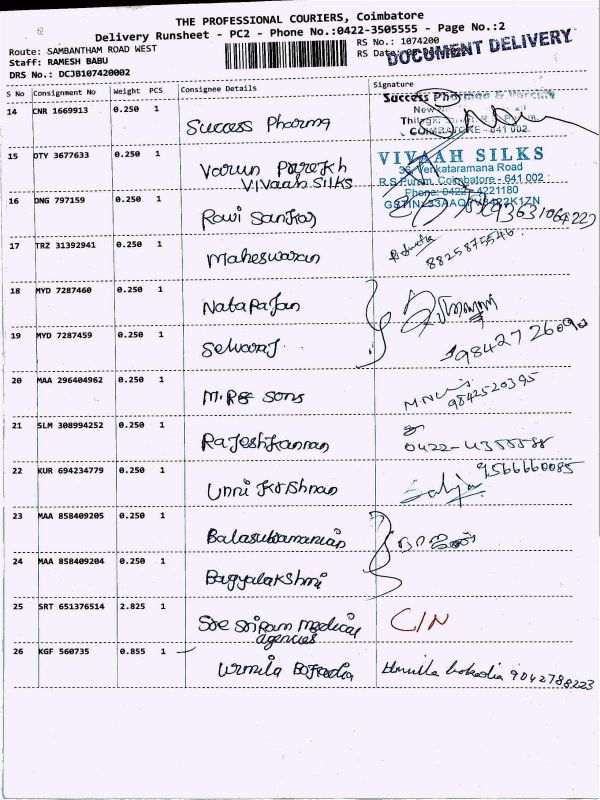 THE PROFESSIONAL COURIERS, Coimbatore
Delivery Runsheet - PC2 - Phone No.:0422-3505555 - Page No.:2
Route: SAMBANTHAM ROAD WEST
Staff: RAMESH BABU
DRS No.: DCJB107420002
RS No.: 1074200
RS Date:
DOCUMENT DELIVERY
S No Consignment No Weight PCS Consignee Details Signature
14 CNR 1669913 0.250 1 Success Pharma
Success Pharma
COIMBATORE - 641 002
15 DTY 3677633 0.250 1 Varun Parekh
Vivaah Silks
VIVAAH SILKS
36, Venkataramana Road
R.S.Puram, Coimbatore - 641 002
Phone: 0422 - 4221180
16 DNG 797159 0.250 1 Ravi Sankar
17 TRZ 31392941 0.250 1 Maheswaran
8825875546
18 MYD 7287460 0.250 1 Natarajan
19 MYD 7287459 0.250 1 Selvaraj
20 MAA 296404962 0.250 1 M.R& Sons
9842520395
21 SLM 308994252 0.250 1 Rajeshkannan
22 KUR 694234779 0.250 1 Unni Krishnan
9566660085
23 MAA 858409205 0.250 1 Balasubramanian
24 MAA 858409204 0.250 1 Bagyalakshmi
25 SRT 651376514 2.825 1 Sre Sriram Medical
agencies
C/N
26 KGF 560735 0.855 1 Urmila Bokadia
Urmila bokadia 9042788223